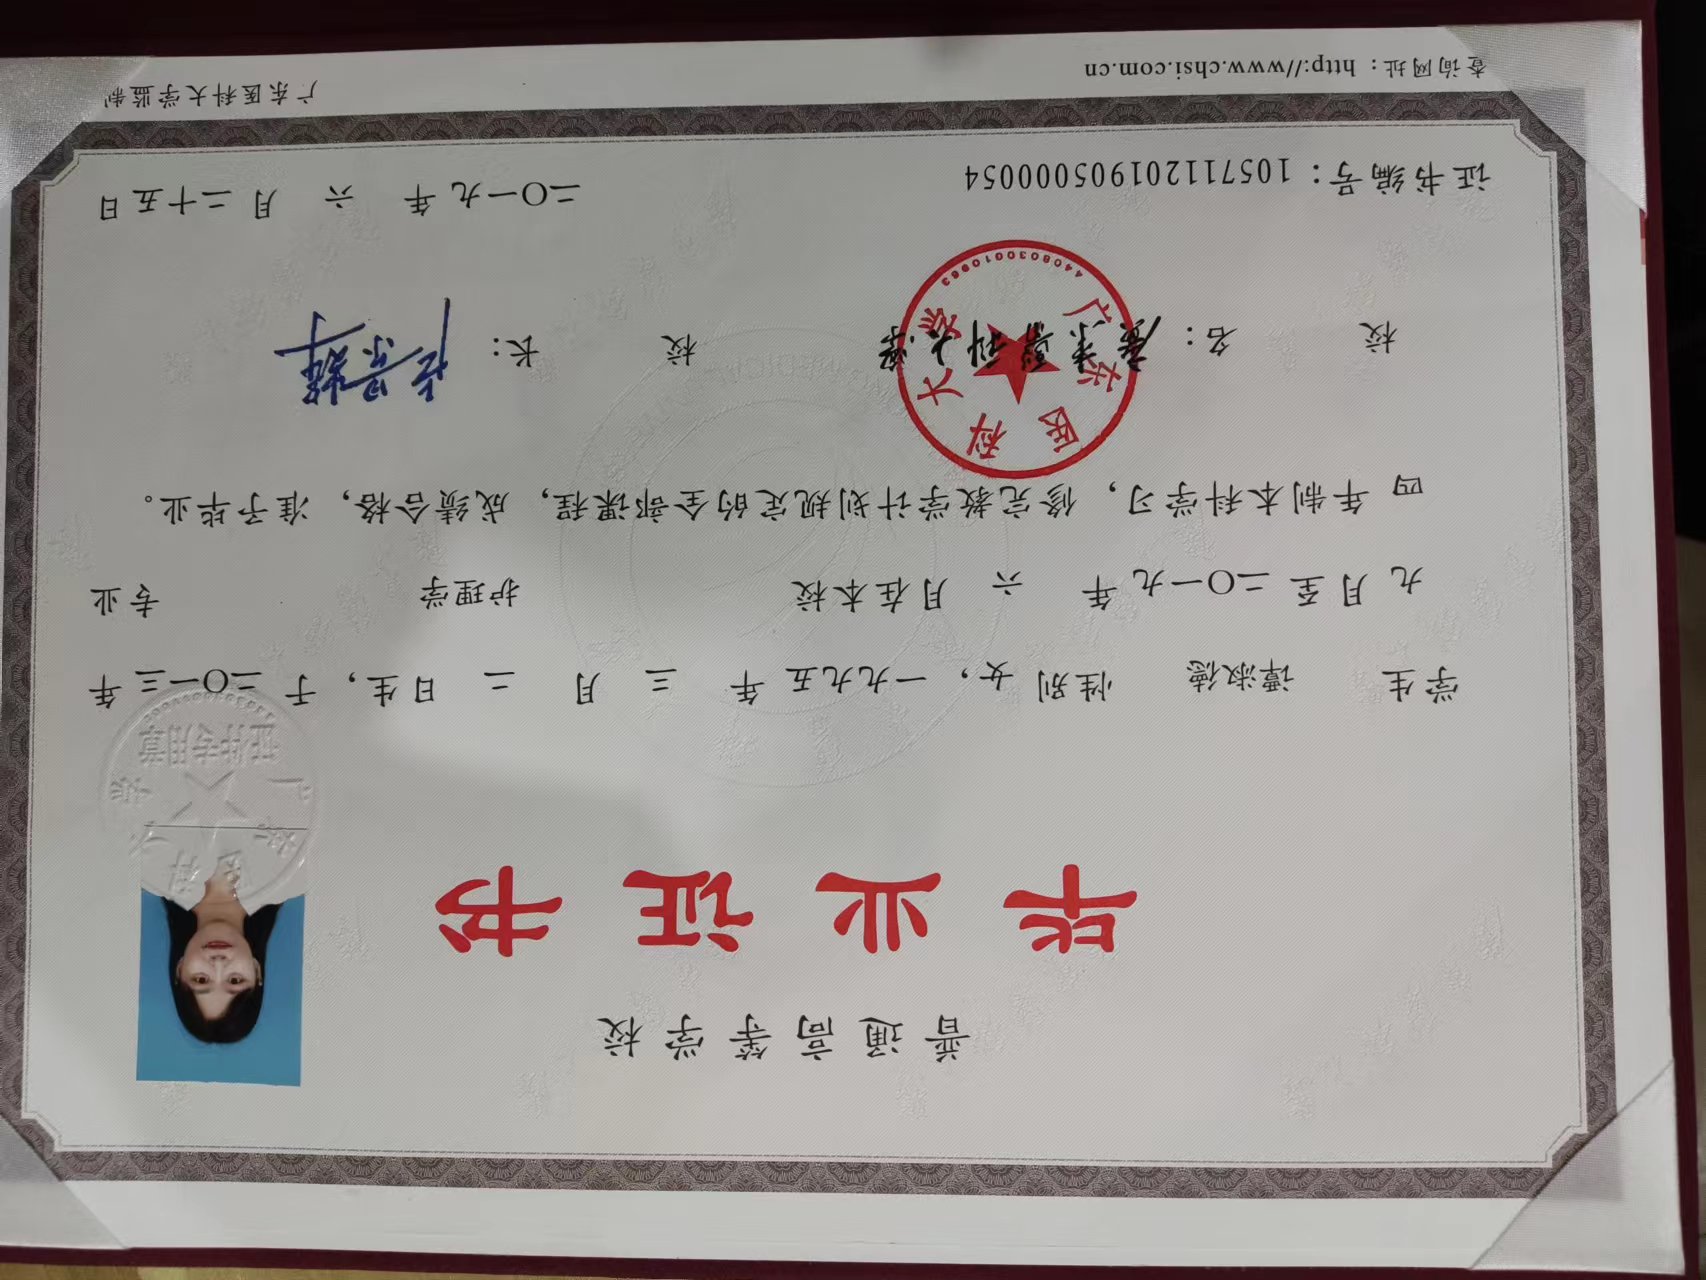 普通高等学校
毕业证书
学生 谭淑德 性别 女，一九九五 年 三 月 二 日生，于 二〇一三 年
九 月 至 二〇一九 年 六 月 在 本 校 护理学 专 业
四 年 制 本 科 学 习，修 完 教 学 计 划 规 定 的 全 部 课 程，成 绩 合 格，准 予 毕 业。
校 名： 广东医科大学 校 长：
广东医科大学
4408030010963
证件专用章
证书编号：105711201905000054 二〇一九 年 六 月 二十五 日
查询网址：http://www.chsi.com.cn 广东医科大学监制